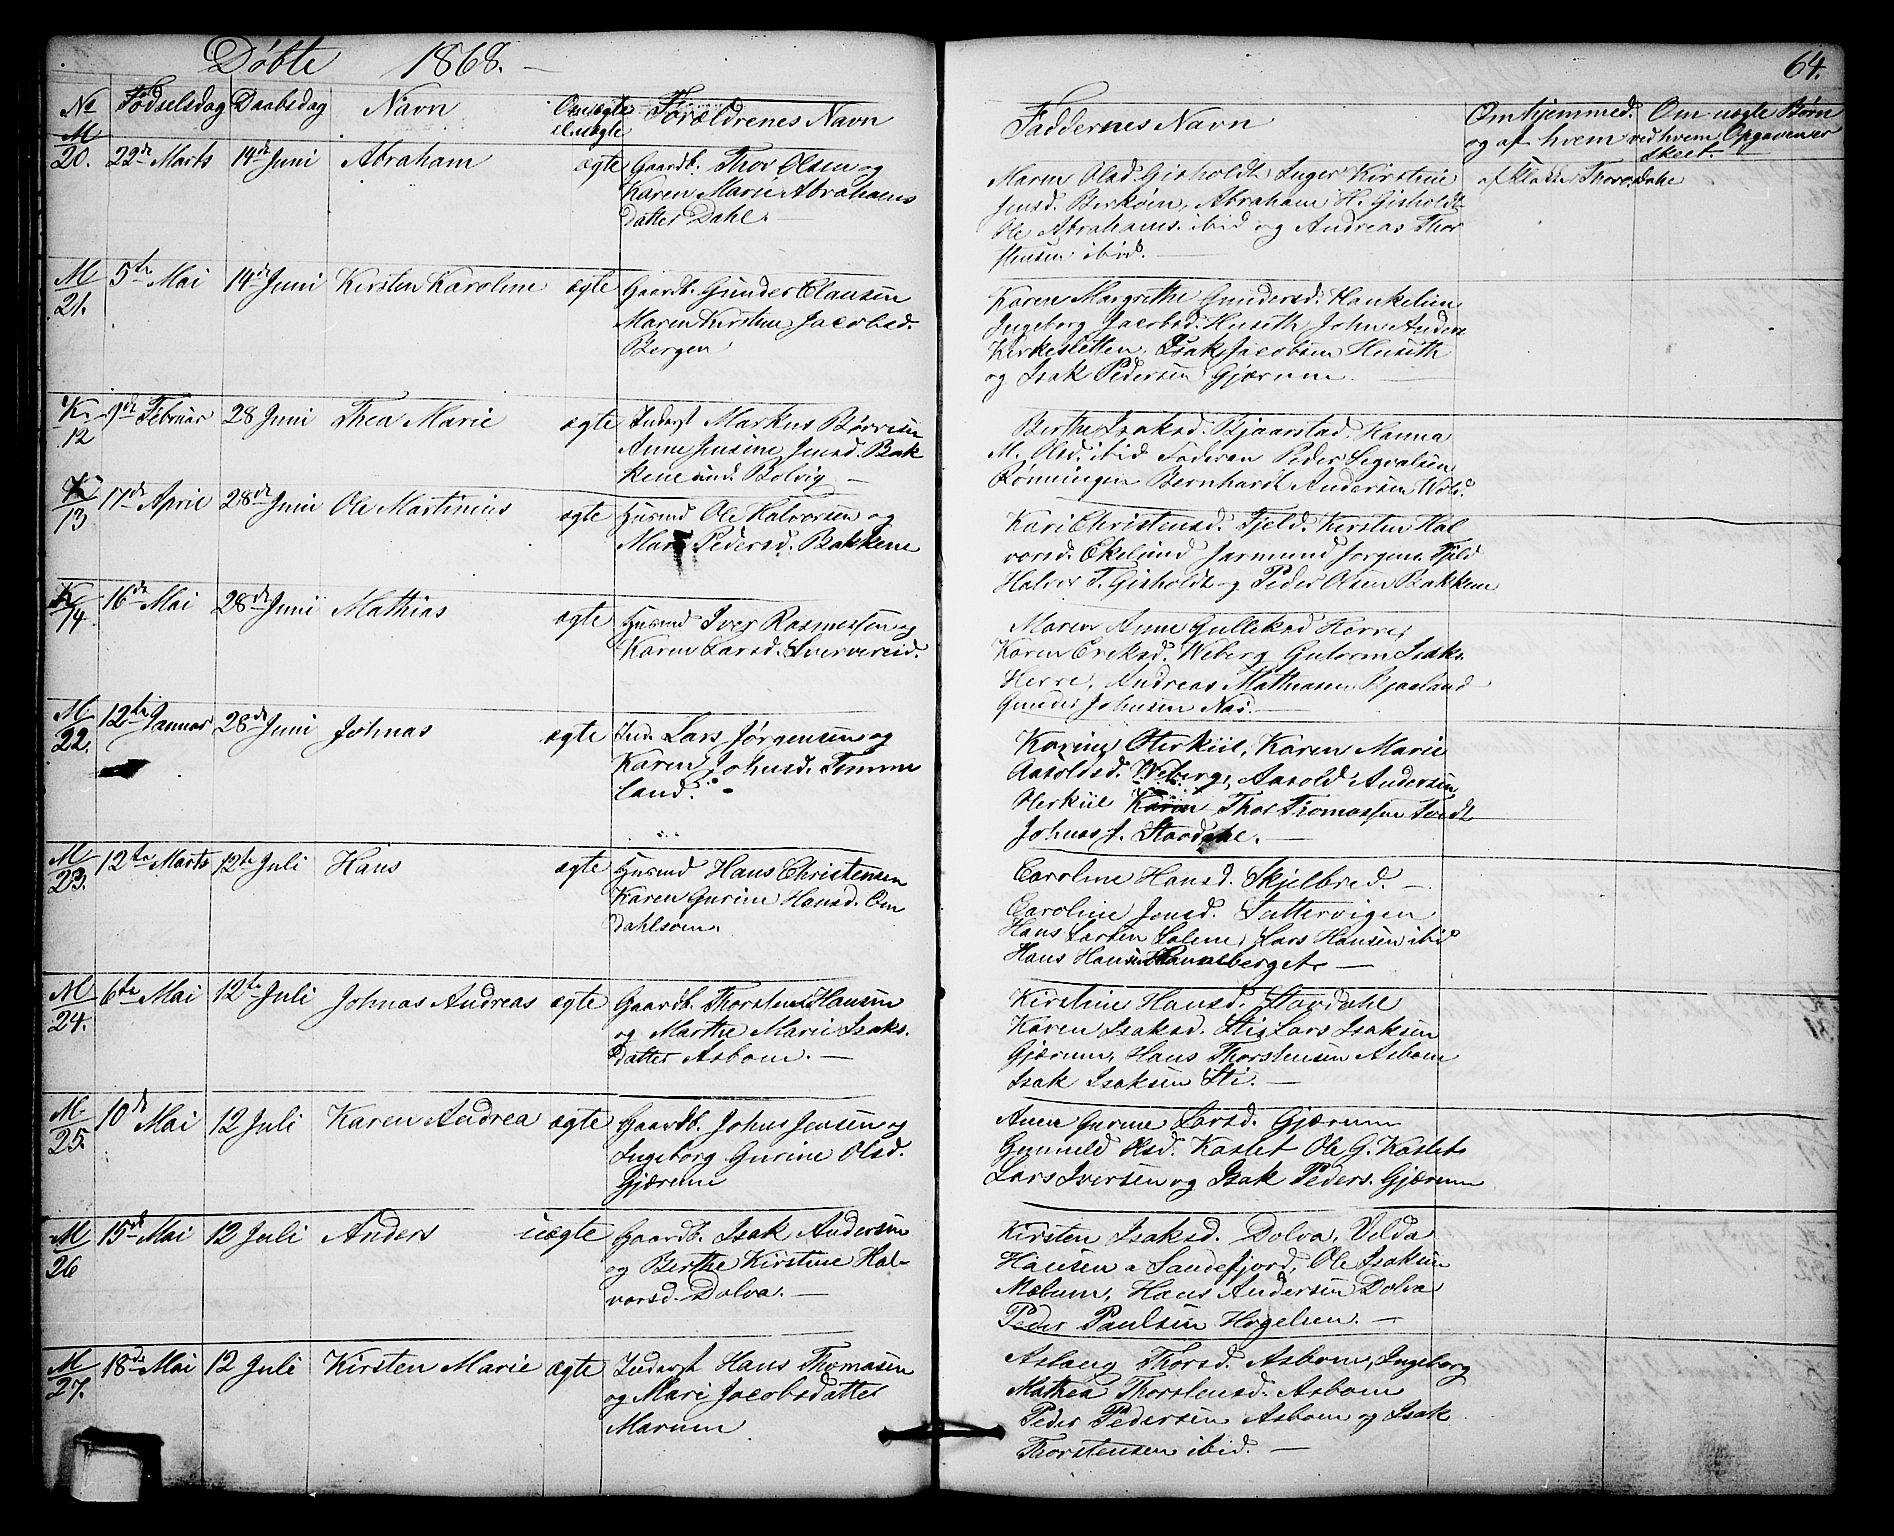 Döbte 1868.
64.
No Födselsdag Daabsdag Navn Om ægte el. uægte Forældrenes Navn
Faddernes Navn
Om hjemmed. og af hvem
Om uægte Börn ved hvem Opgaven er skeet.
M 20. 22de Marts 14de Juni Abraham ægte Gaardb. Thor Olsen og
Karen Marie Abrahams
Datter Dahl.
Maren Olsd. Gisholdt Inger Kirstine
Jensd. Abraham H. Gisholdt
Ole Abrahams. ibid og Andreas Thor
stensen ibid.
af Thor Dahl
M 21. 5te Mai 14de Juni Kirsten Karoline ægte Gaardb. Gunder Clausen
Maren Kirstine Jacobsd.
Borgen
Karen Margrethe Gundersd.
Ingeborg Jacobsd. Huseth John Anders
Kirkesletten, Isak Jacobsen Huseth
og Isak Pedersen Gjærum
K. 12 9de Februar 28 Juni Thea Marie ægte Inderst Markus Börresen
Anne Jensine Jensd. Bak
kene und. Bolvig
Berthe Isaksd. Bjaarstad. Hanna
M. Olsd. ibid Peder Sigvalsen
Rönningen Bernhardt Andersen
K 13 17de April 28de Juni Ole Martinius ægte Husmd Ole Halvorsen og
Mari Pedersd. Bakkene
Kari Christensd. Fjeld. Kirsten Hal
vorsd. Ekelund Jarmund Jorgens. Fjeld
Halvor T. Gisholdt og Peder Olsen Bakkene
K 14. 16de Mai 28de Juni Mathias ægte Husmd Iver Rasmussen og
Karen Larsd. Sververeid.
Maren Anne Gulleksd Herre,
Karen Eriksd. Weberg Gutorm Isaks.
Herre, Andreas Mathiasen Bjaaland
Gunder Johnsen Nas.
M. 22. 12te Januar 28de Juni Johnas ægte Ind. Lars Jörgensen og
Karen Johnsd. Tömme
land.
Karine Herkül, Karen Marie
Aasoldsd. Weberg, Aasold Andersen
Herkül Thor Thomassen Tvedt
Johnas J. Stordahl.
M 23. 12te Marts 12te Juli Hans ægte Husmd Hans Christensen
Karen Gurine Hansd. Om
Dahlsom.
Caroline Hansd. Skjelbred.
Caroline Jensd. Sattervigen
Hans Larsen Salem, Lars Hansen ibid
Hans Hansen
M 24. 6te Mai 12te Juli Johnas Andreas ægte Gaardb. Thorsten Hansen
og Marthe Marie Isaks.
Datter Asbom.
Kirstine Hansd. Stordahl
Karen Isaksd. Sti, Lars Isaksen
Gjærum, Hans Thorstensen Asbom
Isak Isaksen Sti.
M. 25. 10de Mai 12 Juli Karen Andrea ægte Gaardb. Johns Jensen og
Ingeborg Gurine Olsd.
Gjærum
Anne Gurine Larsd. Gjærum
Gunnild Olsd. Kaslet Ole G. Kaslet
Lars Iversen og Isak Peders. Gjærum
M 26 15de Mai 12 Juli Anders uægte Gaardb. Isak Andersen
og Berthe Kirstine Hal-
vorsd. Dolva.
Kirsten Isaksd. Dolva, Velda
Hansen a Sandefjord, Ole Isaksen
Mælum, Hans Andersen Dolva
Peder Paulsen Hogelsen.
M 27. 18de Mai 12 Juli Kirsten Marie ægte Inderst Hans Thomasen
og Mari Jacobsdatter
Marum
Aslaug Thorsd. Asbom, Ingeborg
Mathea Thorstensd. Asbom
Peder Pedersen Asbom og Isak
Thorstensen ibid.